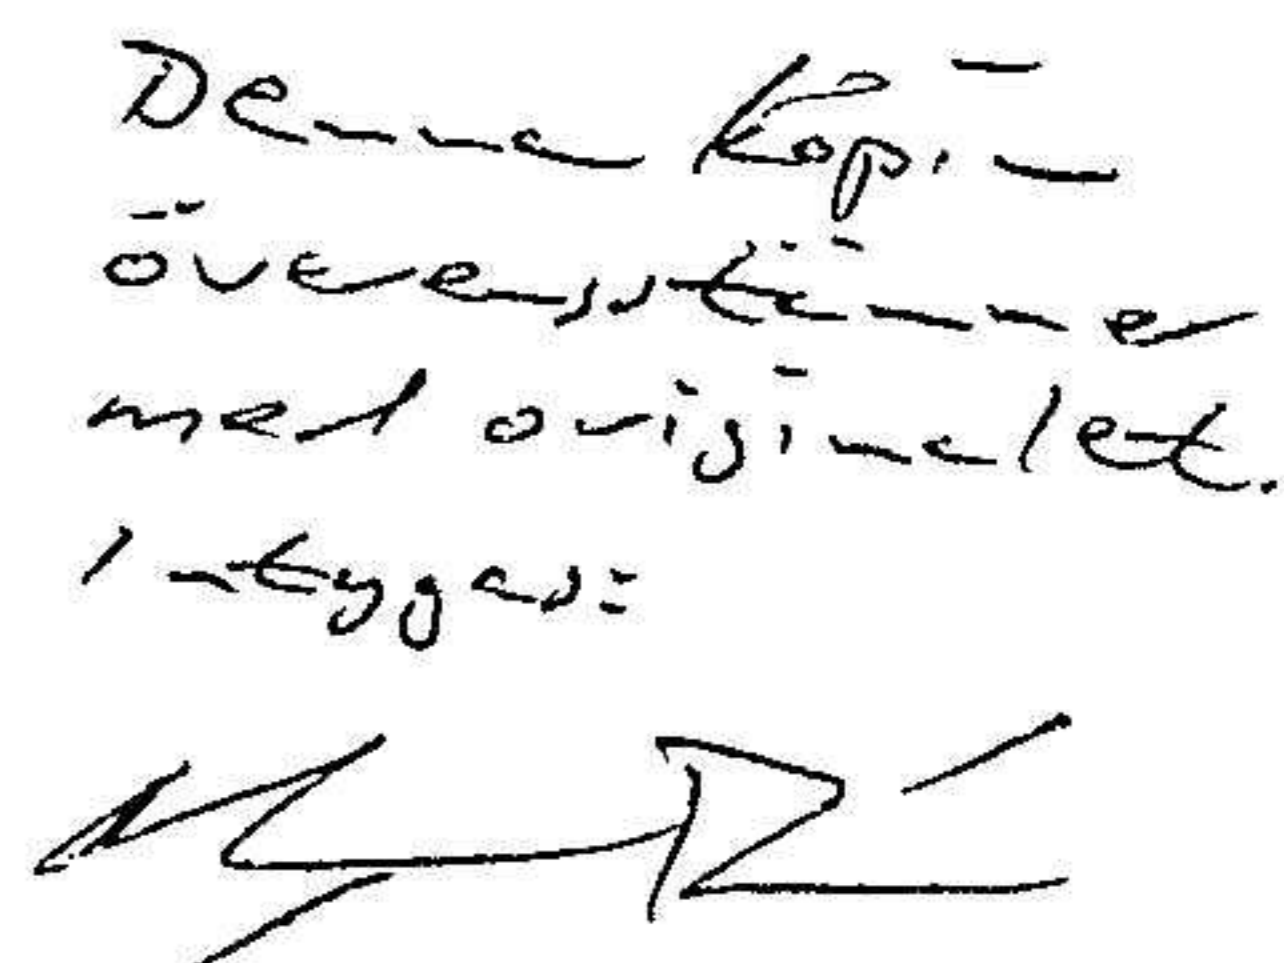 Denna Kopia
överensstämmer
med originalet.
Intygas: